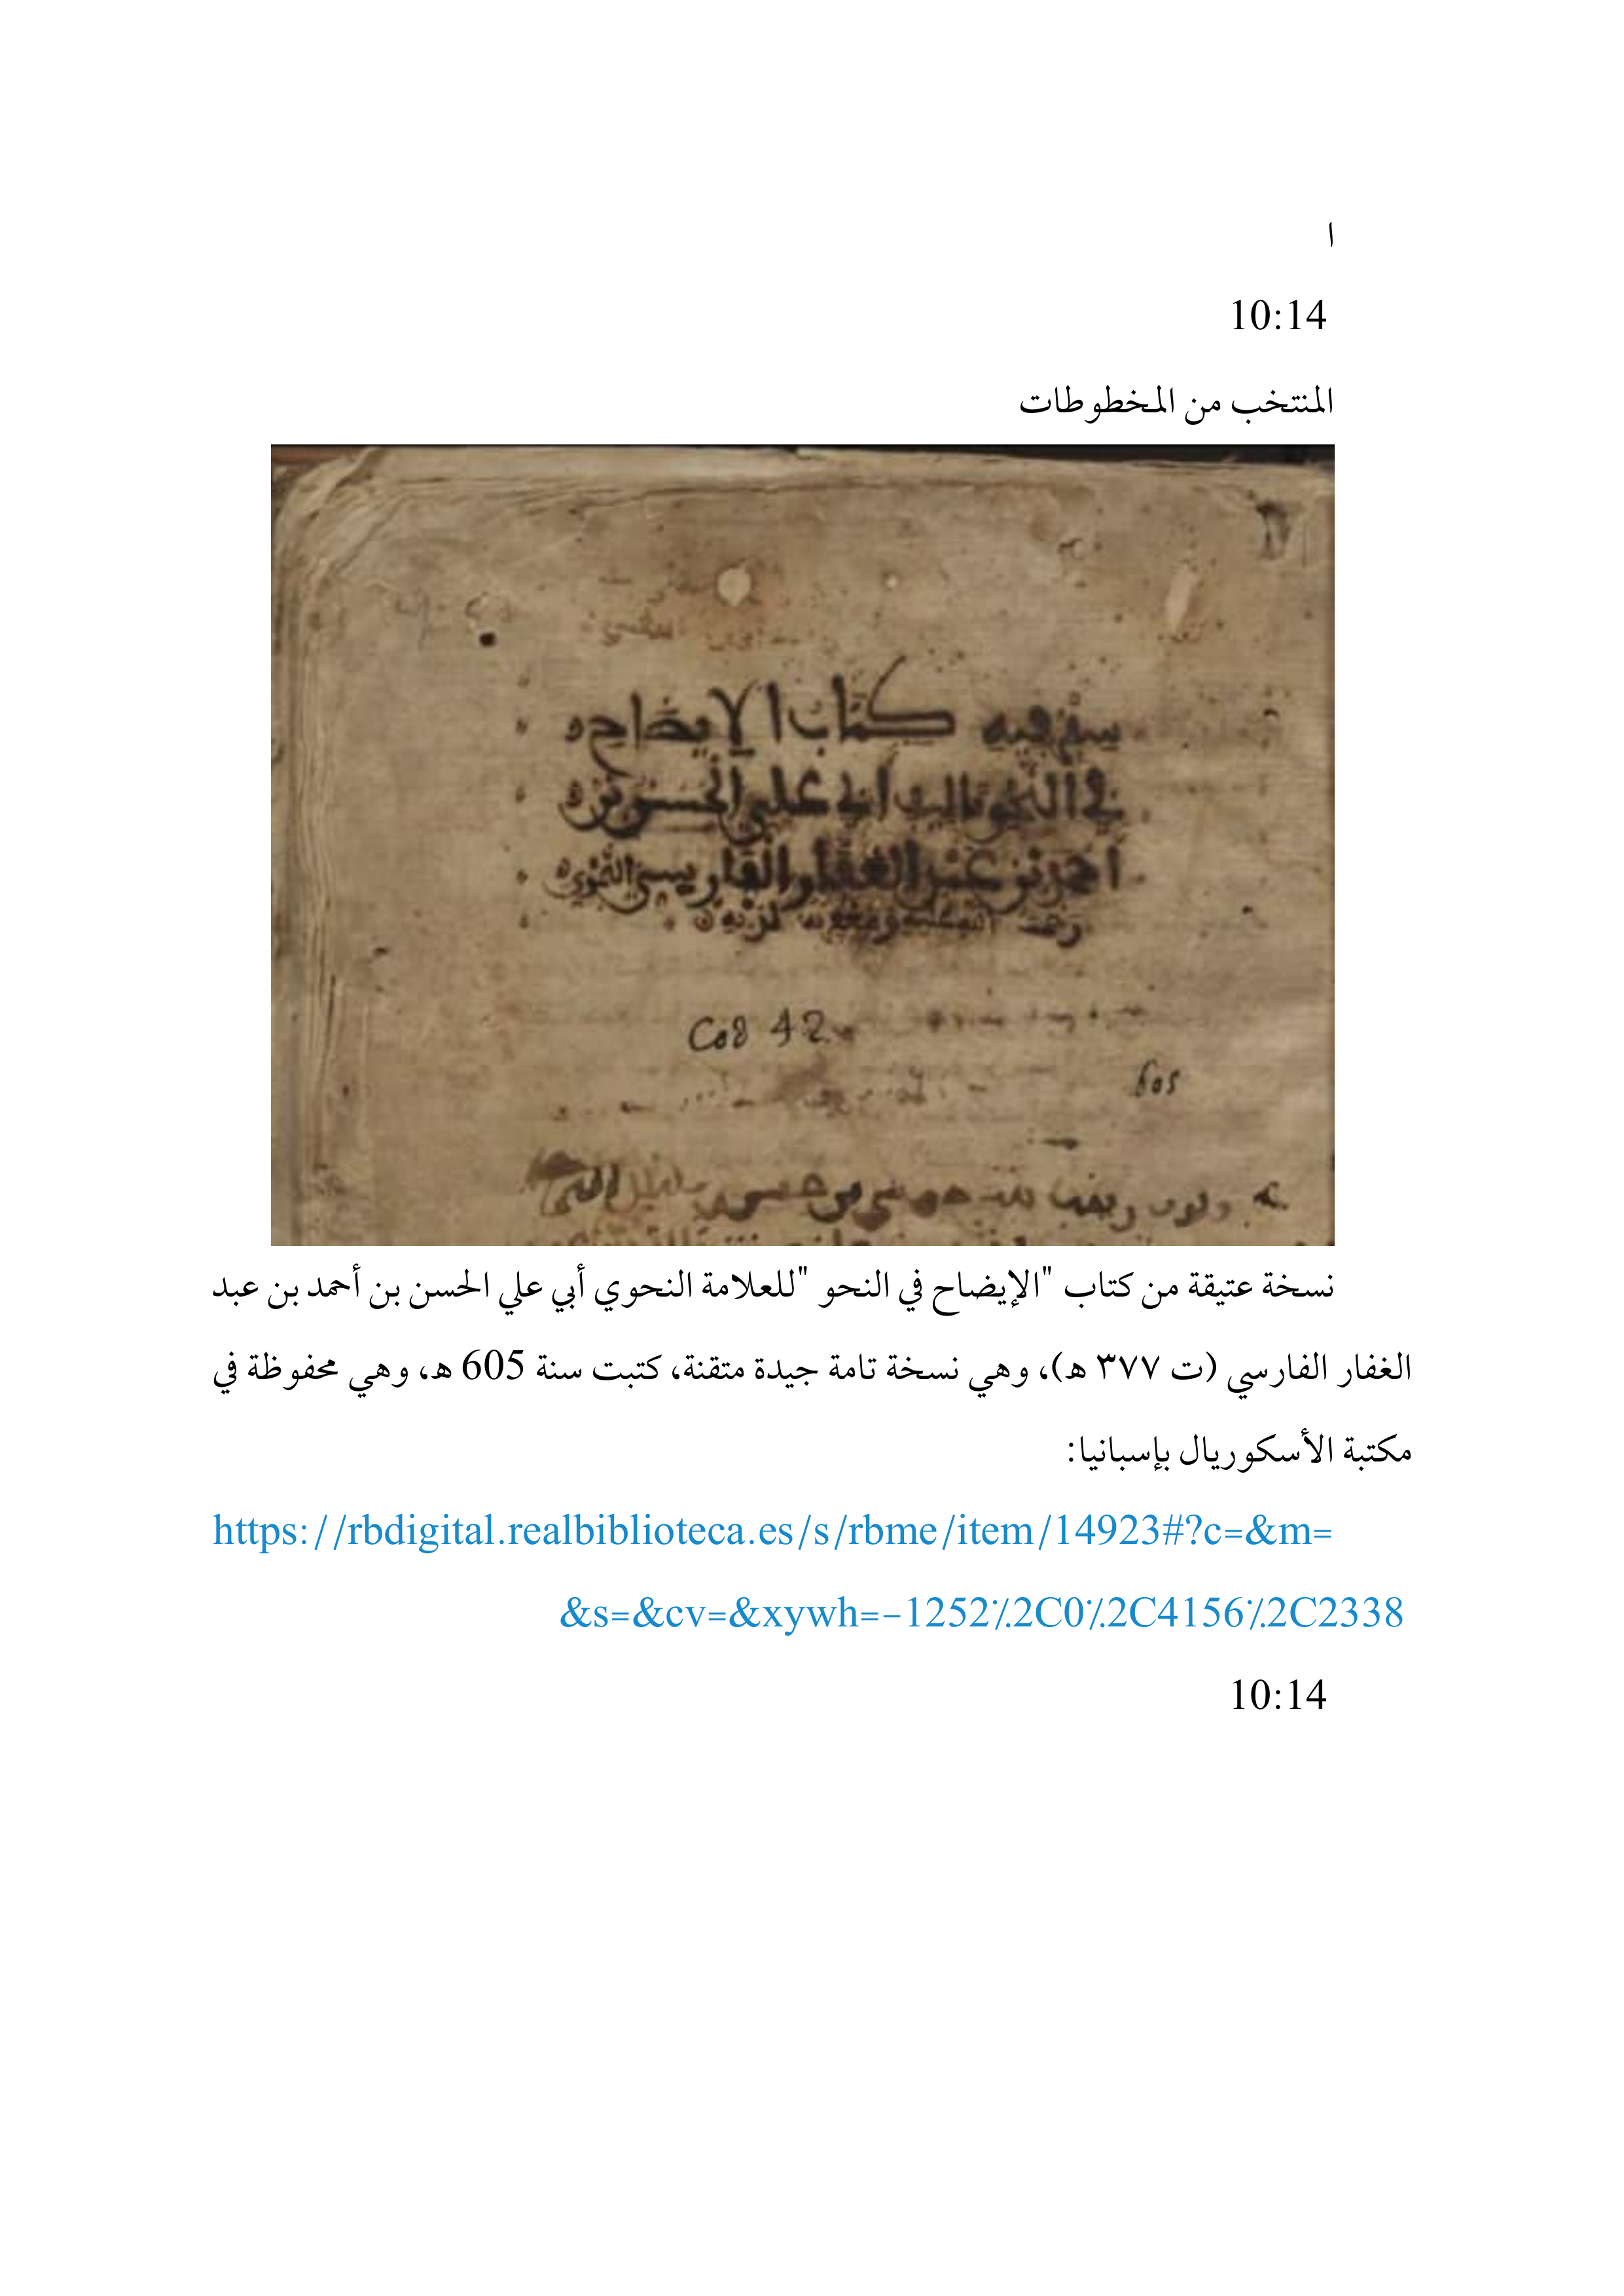 ا
10:14
المنتخب من المخطوطات
سفر فيه كتاب الإيضاح
في النحو تاليف أبي علي الحسن بن
أحمد بن عبد الغفار الفارسي النحوي
رحمة الله عليه
Cod 42
605
نسخة عتيقة من كتاب "الإيضاح في النحو "للعلامة النحوي أبي علي الحسن بن أحمد بن عبد
الغفار الفارسي (ت ٣٧٧ هـ)، وهي نسخة تامة جيدة متقنة، كتبت سنة 605 هـ، وهي محفوظة في
مكتبة الأسكوريال بإسبانيا:
https://rbdigital.realbiblioteca.es/s/rbme/item/14923#?c=&m=
&s=&cv=&xywh=-1252٪2C0٪2C4156٪2C2338
10:14